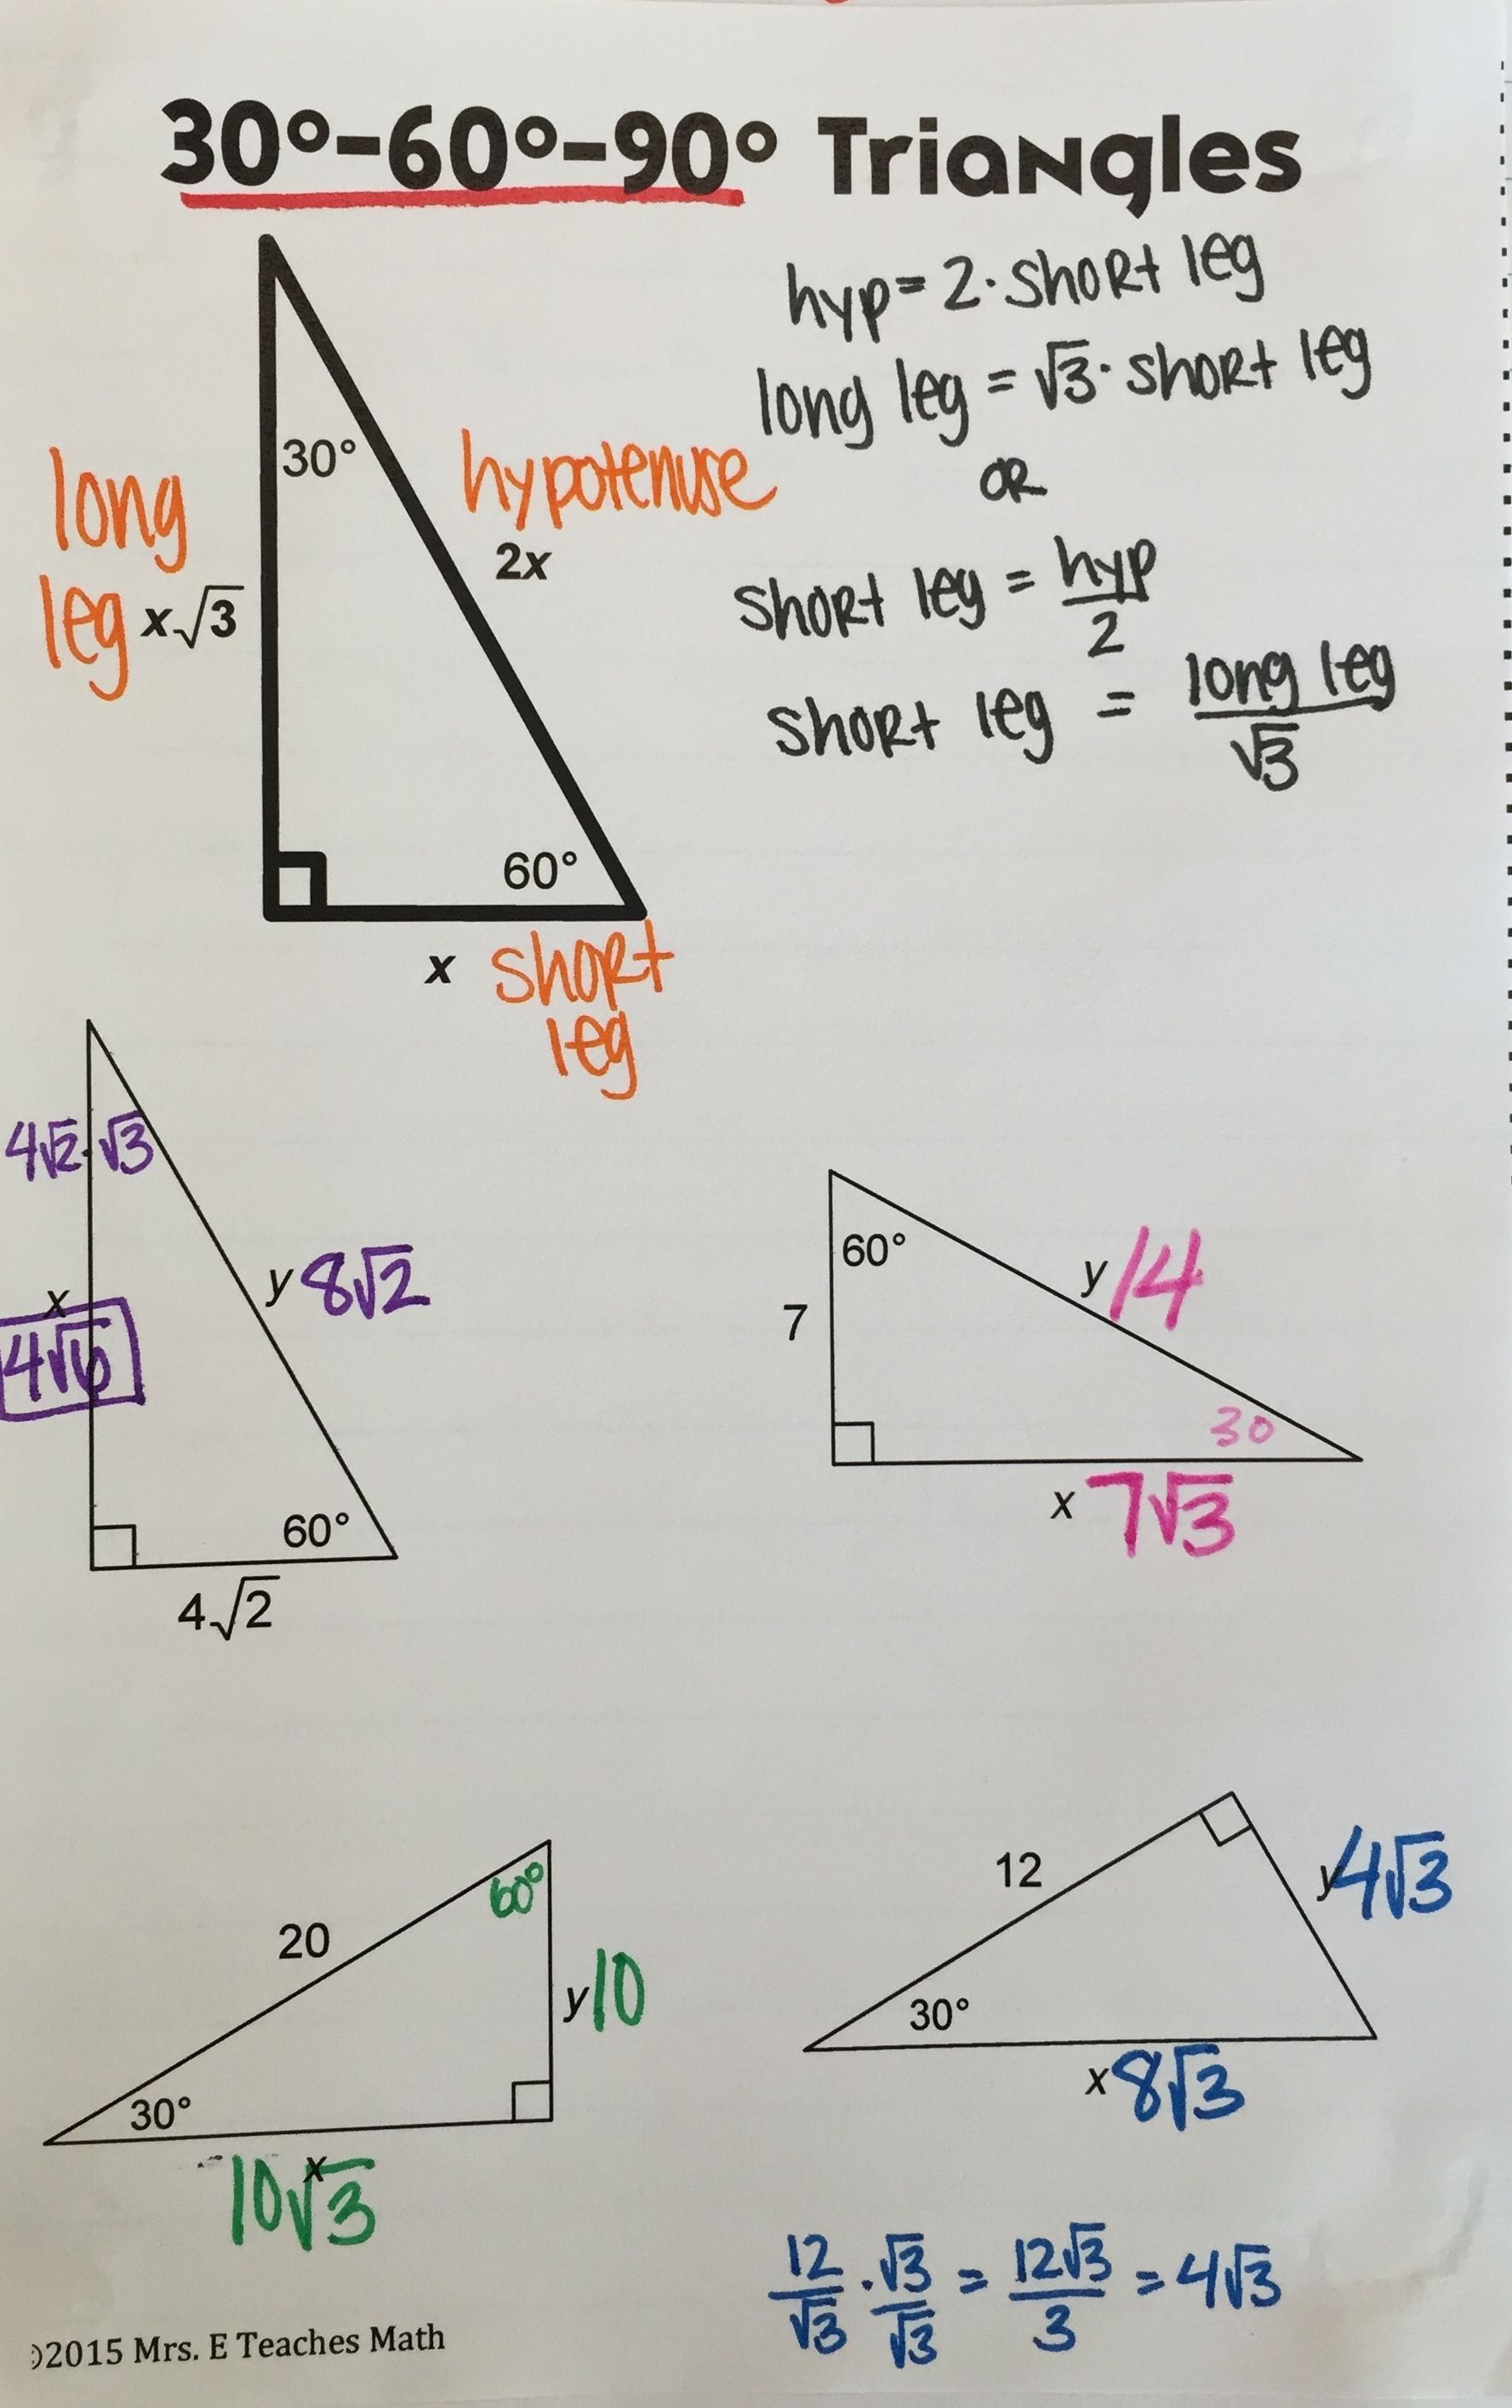 30°-60°-90° Triangles
hyp = 2 · short leg
long leg = √3 · short leg
OR
short leg = hyp/2
short leg = long leg/√3
30°
long
leg x√3
hypotenuse
2x
60°
x short
leg
4√2 · √3
x
4√6
y 8√2
60°
4√2
60°
7
y 14
30
x 7√3
20
60°
y 10
30°
x
10√3
12
y 4√3
30°
x 8√3
12/√3 · √3/√3 = 12√3/3 = 4√3
©2015 Mrs. E Teaches Math